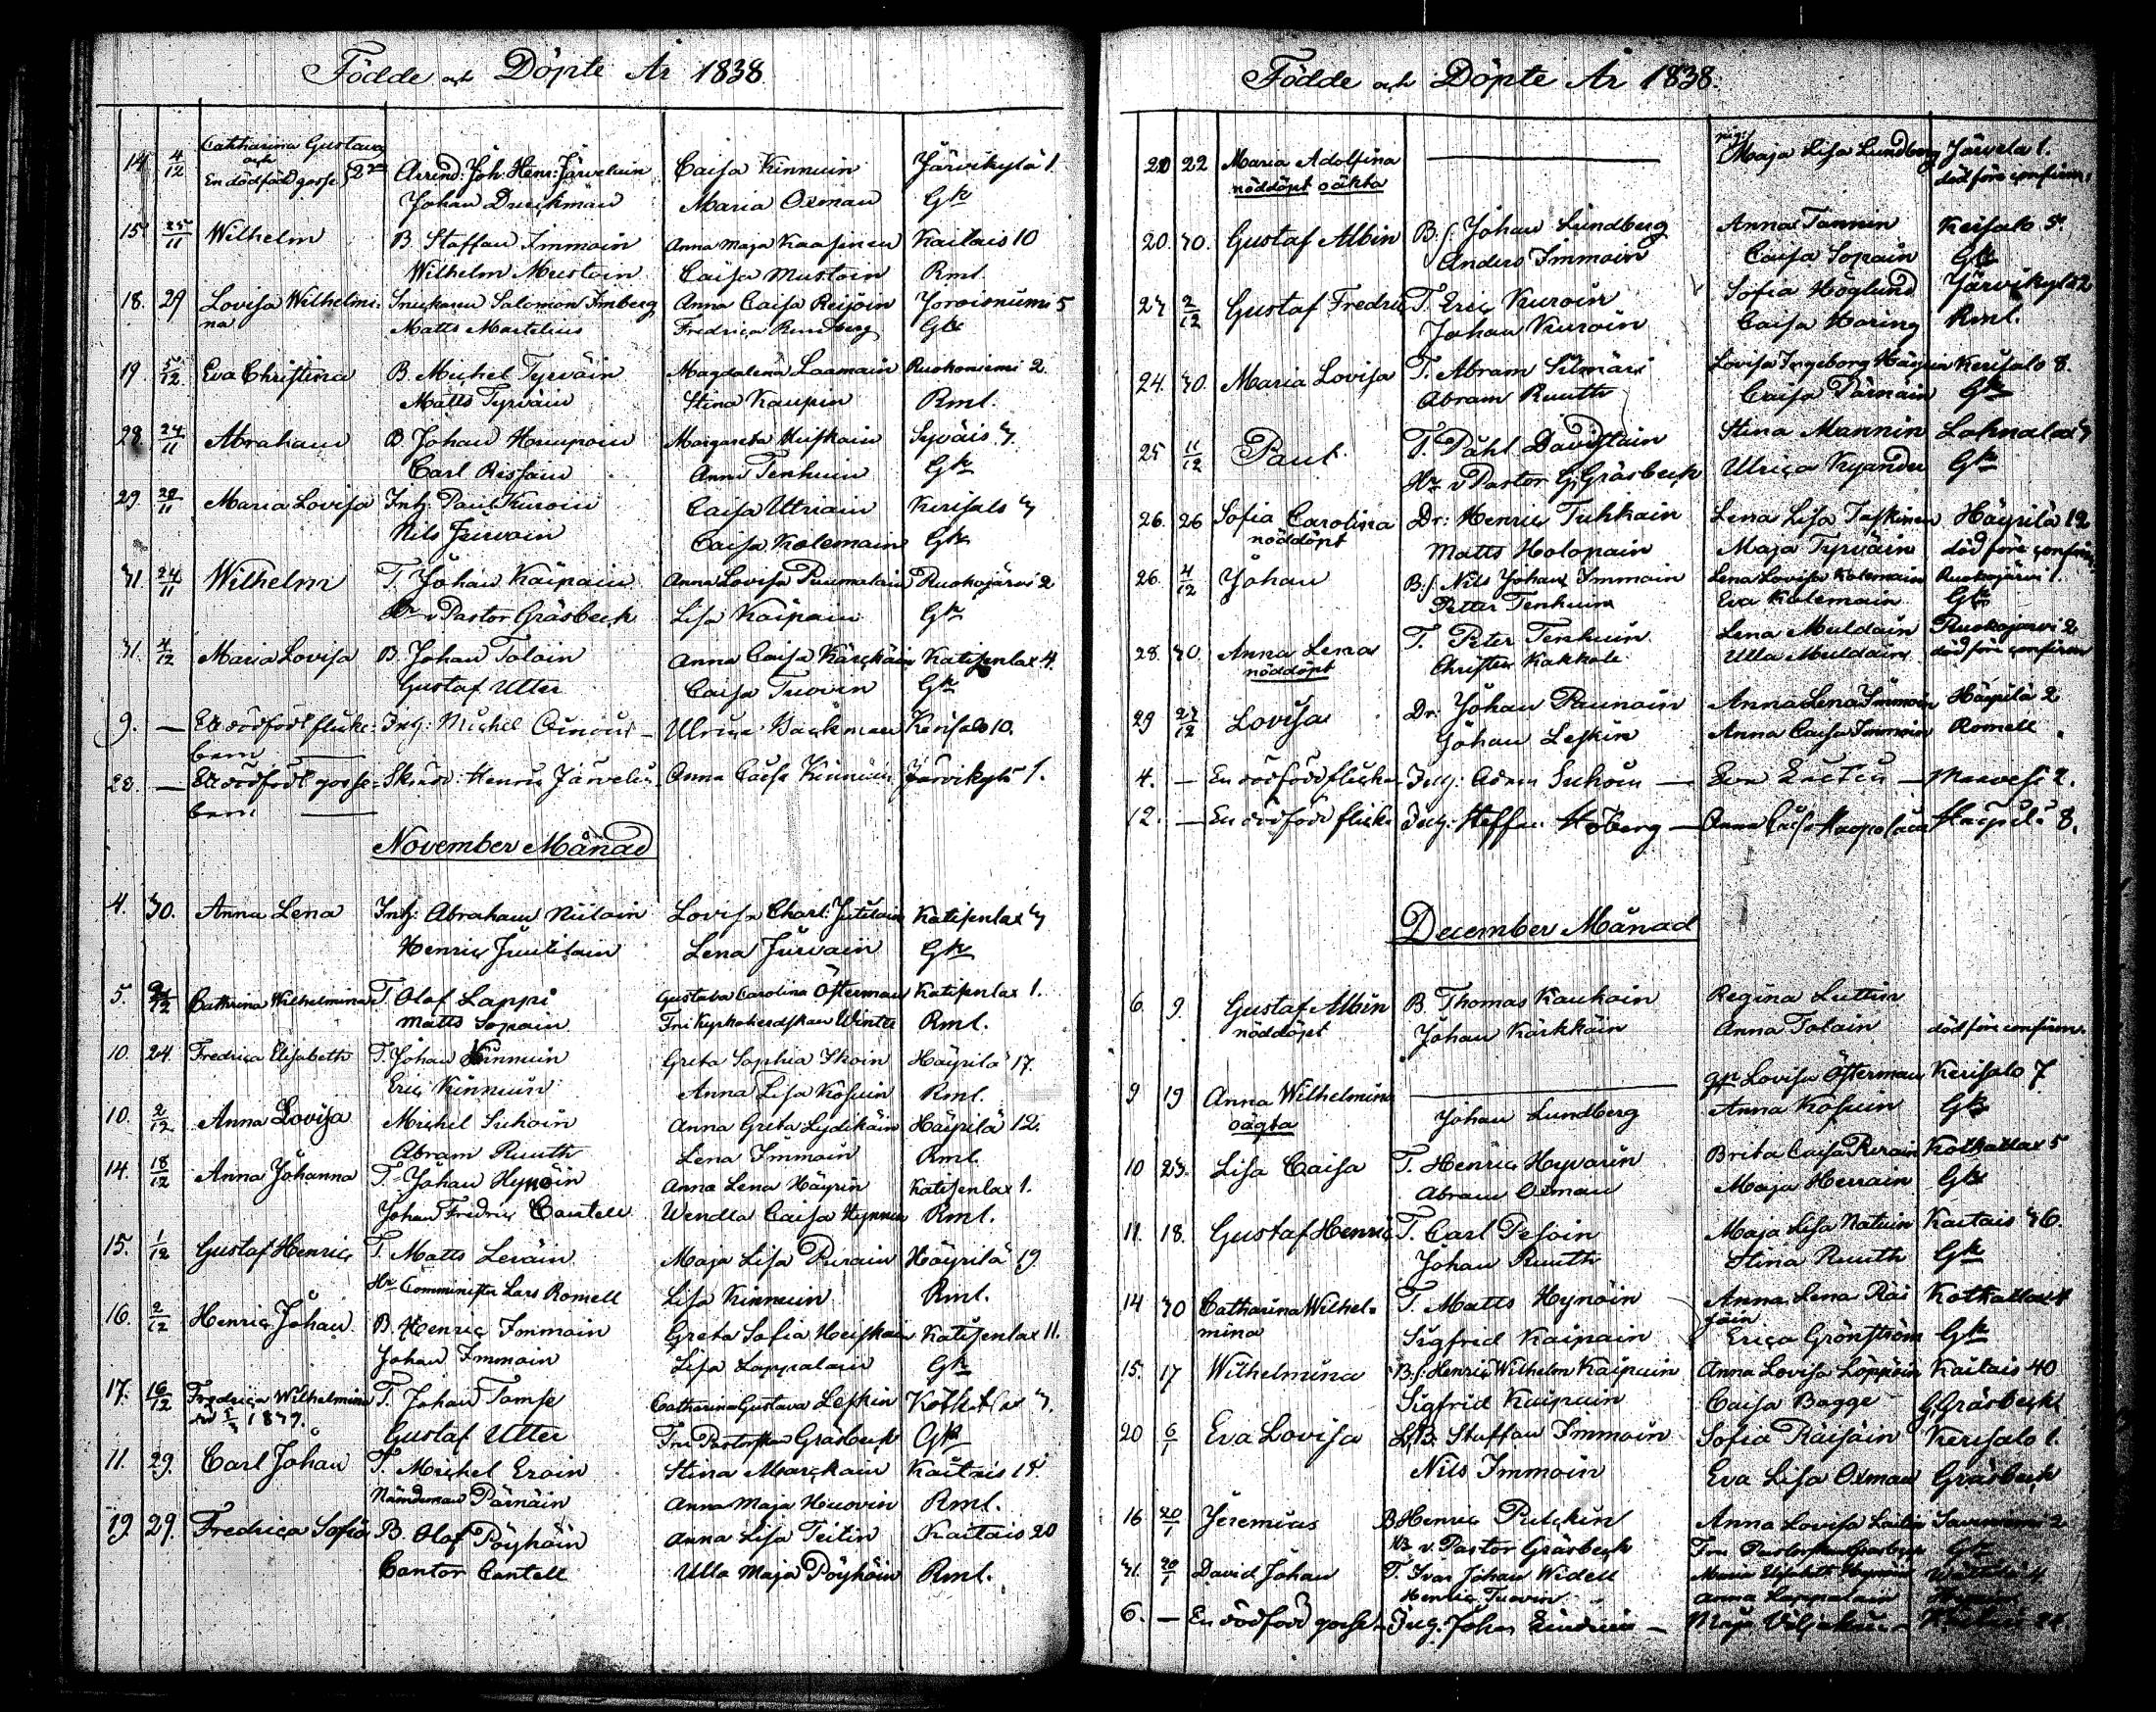 Födde och Döpte År 1838
Catharina Gustava
och
14 4/12 En dödfödd gosse Arrend: Joh: Henr: Järveluin Caisa Kinnuin Järvikylä 1.
Johan Druckman Maria Oxman Gk
15 25/11 Wilhelm B. Staffan Immoin Anna Maja Kaasinen Kaitais 10
Wilhelm Mustoin Caisa Mustoin Rml.
18. 29 Lovisa Wilhelmi- Snickaren Salomon Imberg Anna Caisa Reijoin Joroisniemi 5
na Matts Martelius Fredrica Rundberg Gk
19 5/12 Eva Christina B. Michel Tyrväin Magdalena Laamain Ruokoniemi 2
Matts Tyrväin Stina Kaupin Rml.
28. 24/11 Abraham B. Johan Hämpoin Margareta Huiskain Syväis 3
Carl Rissain Anna Tenhuin Gk
29 29/11 Maria Lovisa Inh. Paul Kuroin Caisa Utriain Kerisalo 3
Nils Jurvain Caisa Kolemain Gk
31. 24/11 Wilhelm T. Johan Kaipain Anna Lovisa Puumalain Ruokojärvi 2
Hr v Pastor Gräsbeck Lisa Kaipain Gk
31. 4/12 Maria Lovisa B. Johan Tolain Anna Caisa Kärckäin Katisenlax 4.
Gustaf Utter Caisa Tuovin Gk
9. — Ett dödfödt flicke- Inh: Michel Ulrica Backman Kerisalo 10.
barn
23. — Ett dödfödt gosse- Henric Järveluin Anna Caisa Kinnuin Järvikylä 1.
barn
November Månad
4. 30. Anna Lena Inh: Abraham Niilain Lovisa Charl: Jutilain Katisenlax 3
Henric Juutilain Lena Jurvain Gk
5. 9/12 Cathrina Wilhelmina T. Olof Lappi Gustava Carolina Österman Katisenlax 1.
Matts Sopain Fru Kyrkoherdskan Winter Rml.
10. 24. Fredrica Elisabeth T. Johan Kinnuin Greta Sophia Ikoin Häyrilä 17.
Eric Kinnuin Anna Lisa Kosuin Rml.
10. 2/12 Anna Lovisa Michel Suhoin Anna Greta Lydikäin Häyrilä 12.
Abram Ruuth Lena Immoin Rml.
14. 18/12 Anna Johanna T. Johan Hynöin Anna Lena Häyrin Katisenlax 1.
Johan Fredric Cantell Wendla Caisa Hynninen Rml.
15. 1/12 Gustaf Henric T. Matts Leväin Maja Lisa Purain Häyrilä 19
Hr Comminister Lars Romell Lisa Kinnuin Rml.
16. 2/12 Henric Johan B. Henric Immoin Greta Sofia Heiskain Katisenlax 11.
Johan Immoin Lisa Lappalain Gk
17. 16/12 Fredrica Wilhelmina T. Johan Tamse Catharina Gustava Leskin Kotkatlax 3.
1839. Gustaf Utter Fru Pastorskan Gräsbeck Gk
11. 29. Carl Johan T. Michel Eroin Stina Marckain Kaitais 15.
Nämdeman Pärnäin Anna Maja Huovin Rml.
19 29. Fredrica Sofia B. Olof Pöyhöin Anna Lisa Teitin Kaitais 20
Cantor Cantell Ulla Maja Pöyhöin Rml.
Födde och Döpte År 1838.
pig:
20 22 Maria Adolfina — Maja Lisa Lundberg Järvelä 1.
nöddöpt oäkta död före confirm.
20. 30. Gustaf Albin B:s. Johan Lundberg Anna Tannin Kerisalo 5.
Anders Immoin Caisa Sopain Gk
23 2/12 Gustaf Fredric T. Eric Kuroin Sofia Höglund Järvikylä 2
Johan Kuroin Caisa Haring Rml.
24. 30. Maria Lovisa T. Abram Silmäri Lovisa Ingeborg Häyrin Kerisalo 8.
Abram Ruuth Caisa Pärnäin Gk
25 11/12 Paul T. Påhl Davidstain Stina Mannin Lahnalax 3
Hr v Pastor G. Gräsbeck Ulrica Kyander Gk
26. 26 Sofia Carolina Dr: Henric Tuhkain Lena Lisa Taskinen Häyrilä 12
nöddöpt Matts Holopain Maja Tyrväin död före confirm.
26. 4/12 Johan B:s. Nils Johan Immoin Lena Lovisa Kolemain Ruokojärvi 1.
Petter Tenhuin Eva Kolemain Gk
28. 30 Anna Lena T. Peter Tenhuin Lena Muldain Ruokojärvi 2
nöddöpt Christer Kakkola Ulla Muldain död före confirm
29 23/12 Lovisa Dr. Johan Paunoin Anna Lena Immoin Häyrilä 2
Johan Leskin Anna Caisa Immoin Romell
4. — En dödfödd flicka Inh: Adam Suhoin — Eva — Maavesi 2.
12. — En dödfödd flicka Inh: Staffan Stoberg — Anna Caisa Häyrilä 8.
December Månad
6. 9. Gustaf Albin B. Thomas Kauhain Regina Luttin
nöddöpt Johan Kärkkäin Anna Tolain död före confirm.
9 19 Anna Wilhelmina — Lovisa Österman Kerisalo 7
oägta Johan Lundberg Anna Kosuin Gk
10 23. Lisa Caisa T. Henric Hyvärin Brita Caisa Purain Kotkatlax 5
Abram Oxman Maja Herrain Gk
11. 18. Gustaf Henric T. Carl Pesoin Maja Lisa Natuin Kaitais 36.
Johan Ruuth Stina Ruuth Gk
14 30 Catharina Wilhel- T. Matts Hynöin Anna Lena Räi Kotkatlax 4
mina Sigfrid Kaipain Erica Grönström Gk
15. 17 Wilhelmina B:s: Henric Wilhelm Kaipain Anna Lovisa Loppoin Kaitais 40
Sigfrid Kaipain Caisa Bagge G. Gräsbeck
20 6/1 Eva Lovisa B. Staffan Immoin Sofia Raisain Kerisalo 1.
Nils Immoin Eva Lisa Oxman Gräsbeck
16 20/1 Jeremias B Henric Pulckin Anna Lovisa
Hr v. Pastor Gräsbeck Fru Pastorskan Gräsbeck Gk
31. 20/1 David Johan T. Ivar Johan Widell Maria Elisabeth
Henric Tuovin Anna
6. — En dödfödd gosse — Inh. Johan — Maja